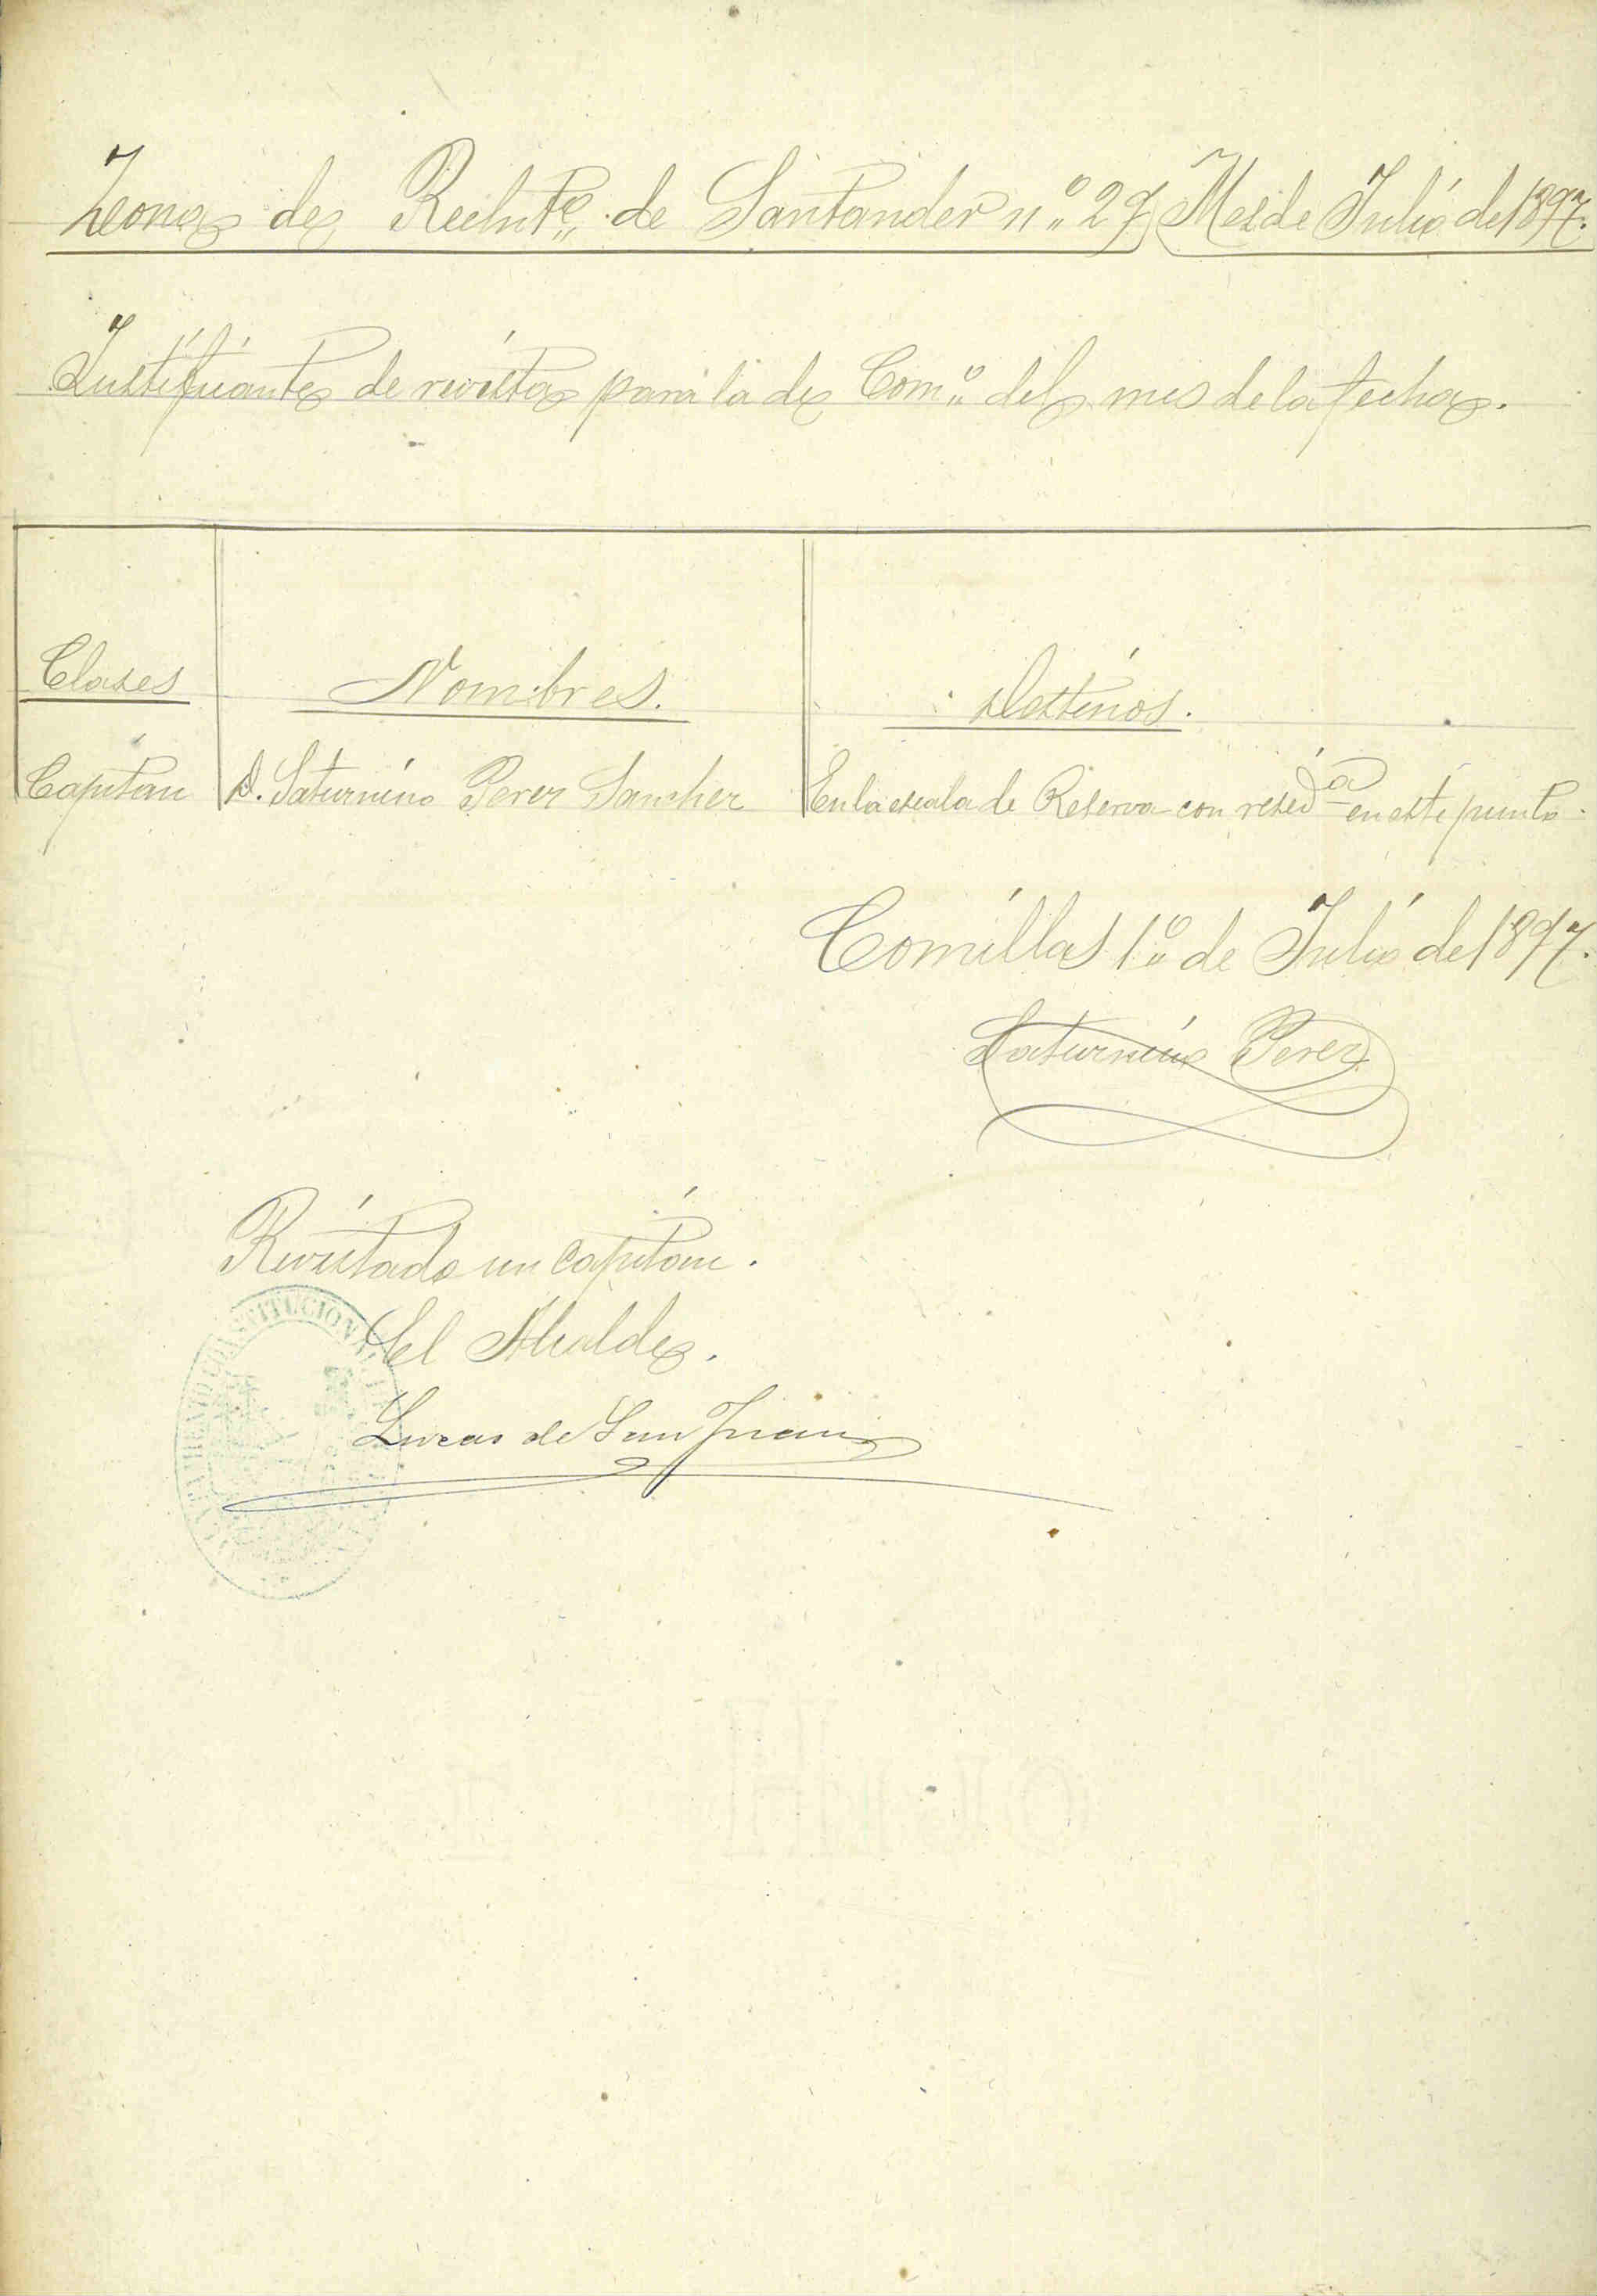 Zona de Reclutº de Santander nº 29 Mes de Julio de 1897.
Justificante de revista para la de Comº del mes de la fecha.
Clases Nombres. Destinos.
Capitan D. Saturnino Perez Sanchez En la escala de Reserva con residª en este punto.
Comillas 1º de Julio de 1897.
Saturnino Perez
Revistado un capitan.
El Alcalde.
Lucas de San Juan
CONSTITUCION